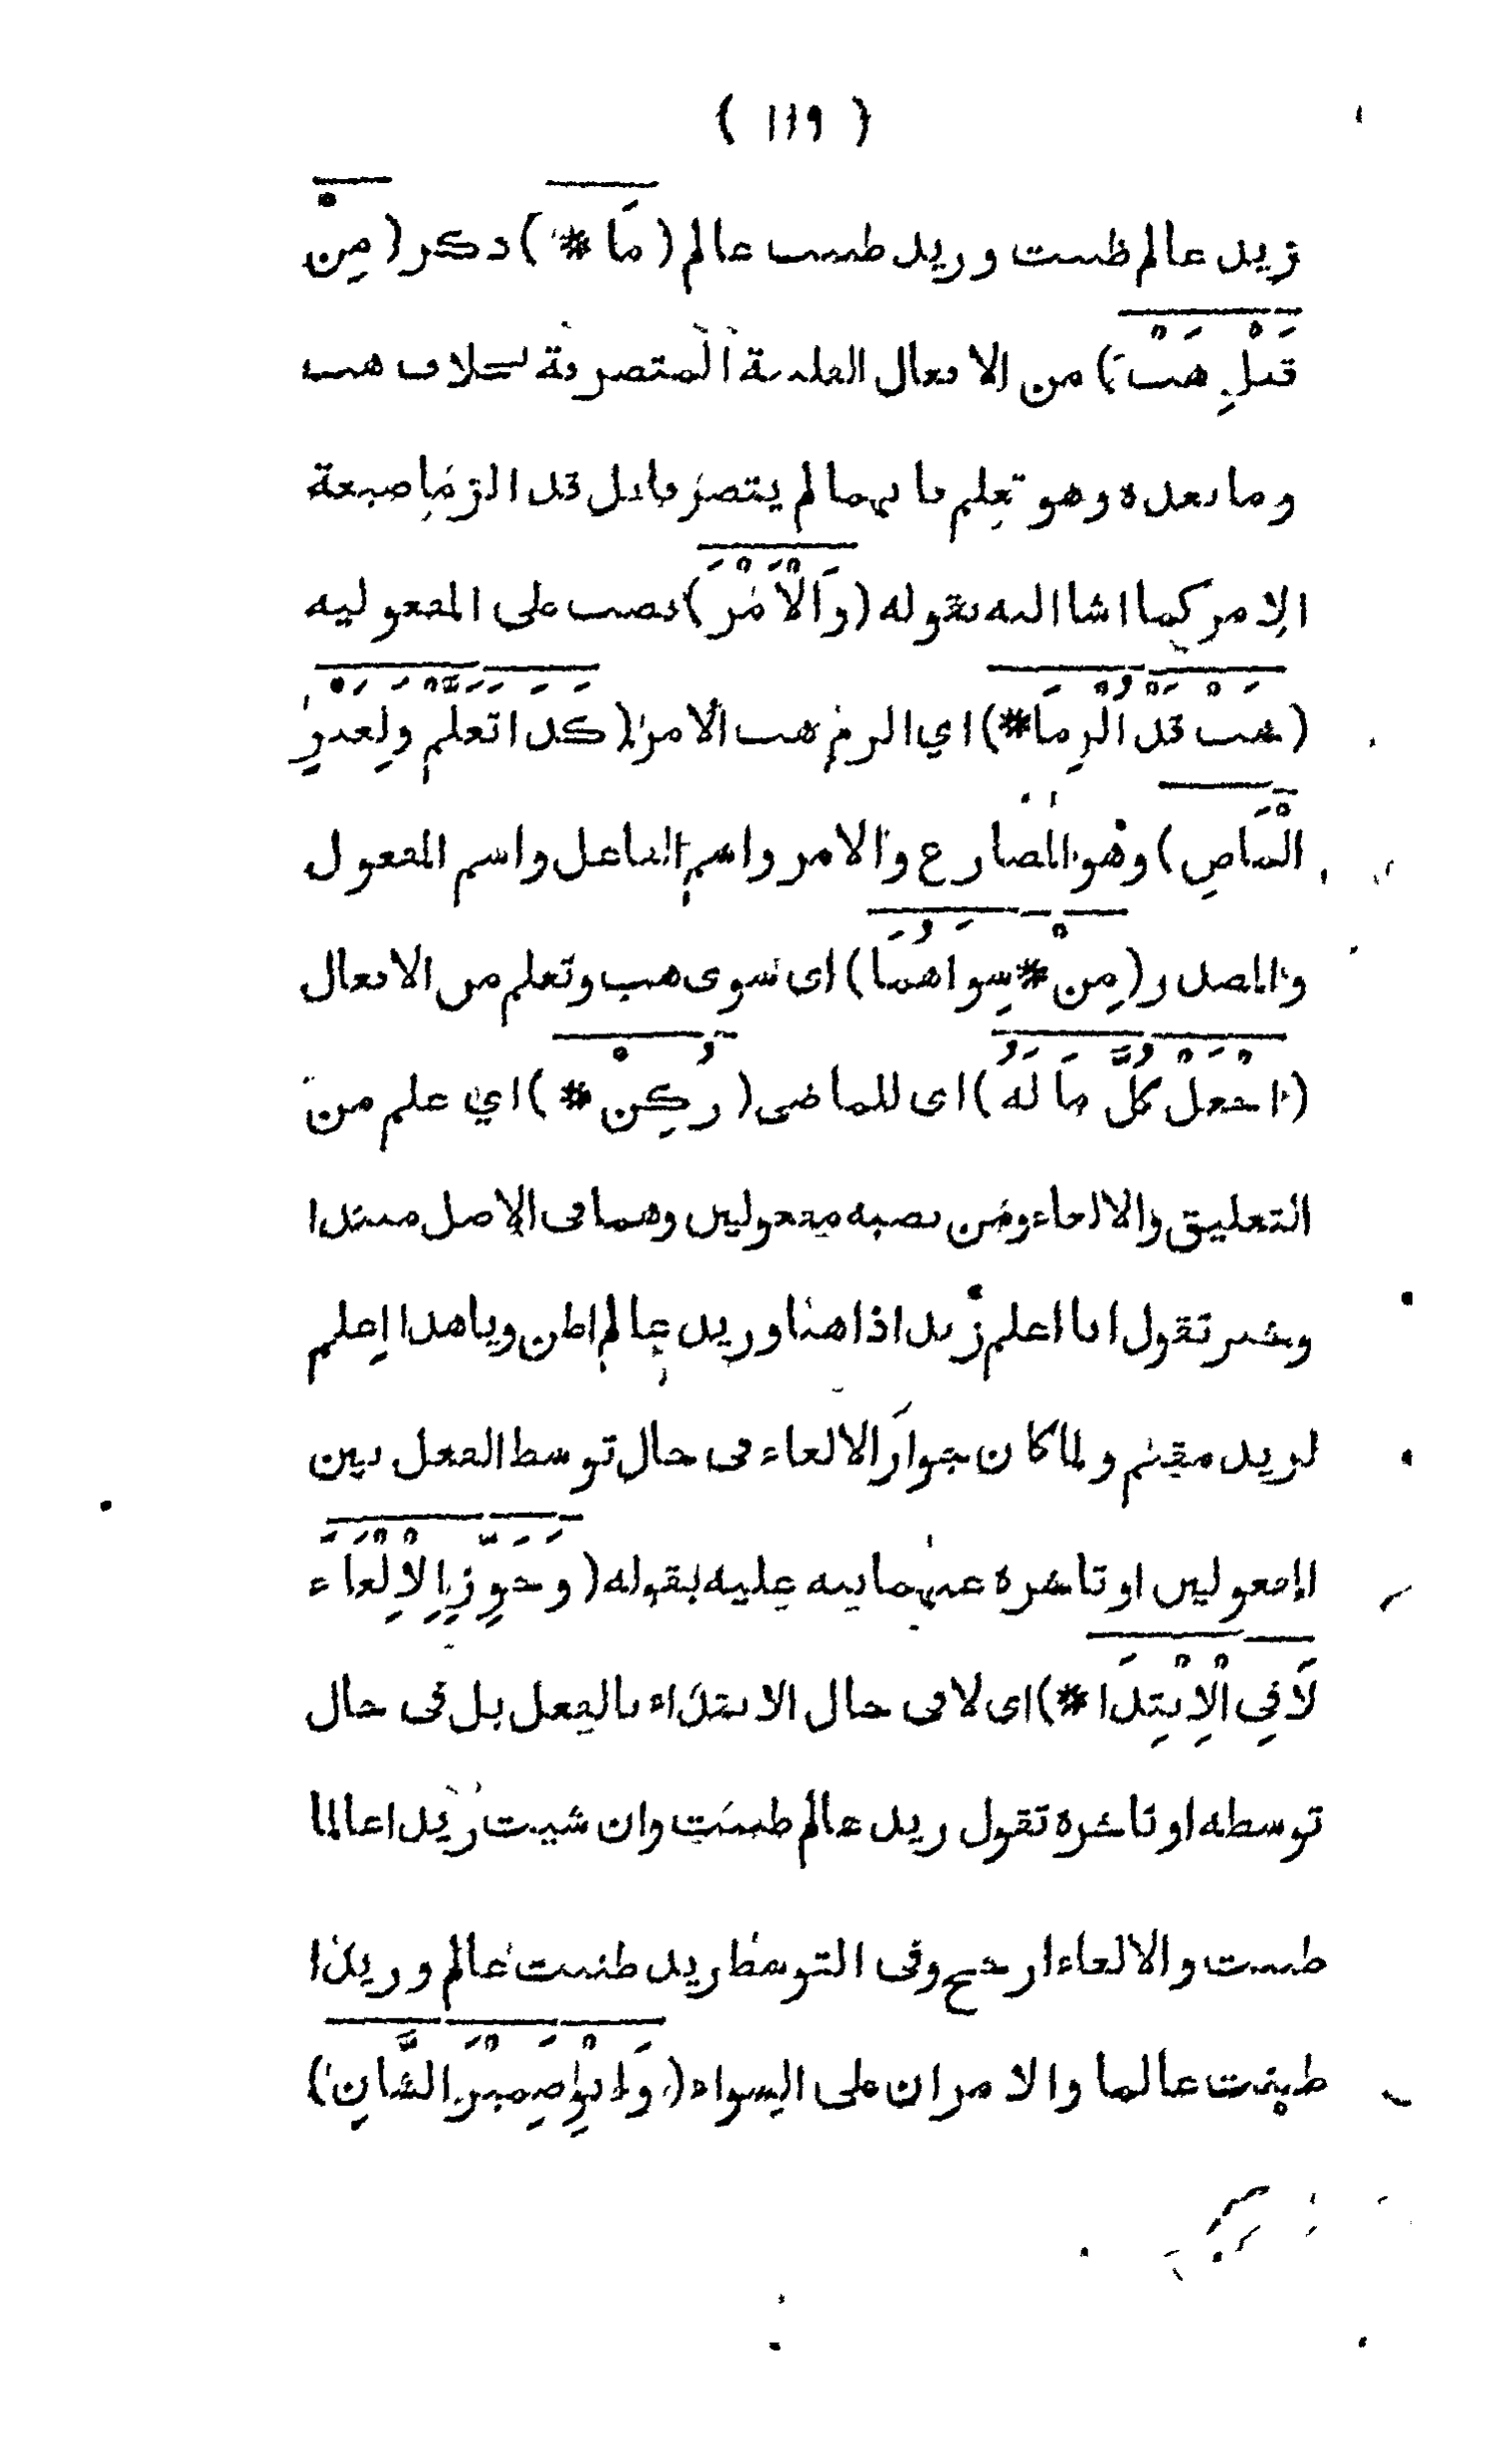 ( ١١٩ )
زيد عالم ظننت وزيد ظننت عالم (مَا *) ذكر (مِنْ
قَبْلِ هَبْ) من الافعال القلبية المتصرفة بخلاف هب
وما بعده وهو تعلم فانهما لم يتصرفا بل قد الزما صيغة
الامر كما اشا اليه بقوله (وَالْاَمْرَ) نصب على المفعوليه
(هَبْ قَدْ اُلْزِمَا *) اي الزم هب الامر (كَذَا تَعَلَّمْ وَلِغَيْرِ
الْمَاضِ) وهو المضارع والامر واسم الفاعل واسم المفعول
والمصدر (مِنْ * سِوَاهُمَا) اى سوى هب وتعلم من الافعال
(اجْعَلْ كُلَّ مَا لَهُ) اى للماضى (زُكِنْ *) اي علم من
التعليق والالغاء ومن نصبه مفعولين وهما فى الاصل مبتدا
وخبر تقول انا اعلم زيدا ذاهبا وزيد عالم اظن ويا هذا اعلم
لزيد مقيم ولما كان جواز الالغاء فى حال توسط الفعل بين
المفعولين او تاخره عنهما نبه عليه بقوله (وَجَوِّزِ الْاِلْغَاءَ
لَا فِي الْاِبْتِدَا *) اى لا فى حال الابتداء بالفعل بل فى حال
توسطه او تاخره تقول زيد عالم ظننت وان شيت زيدا عالما
ظننت والالغاء ارجح وفى التوسط زيد ظننت عالم وزيدا
ظننت عالما والامران على السواء (وَانْوِ ضَمِيْرَ الشَّانِ)